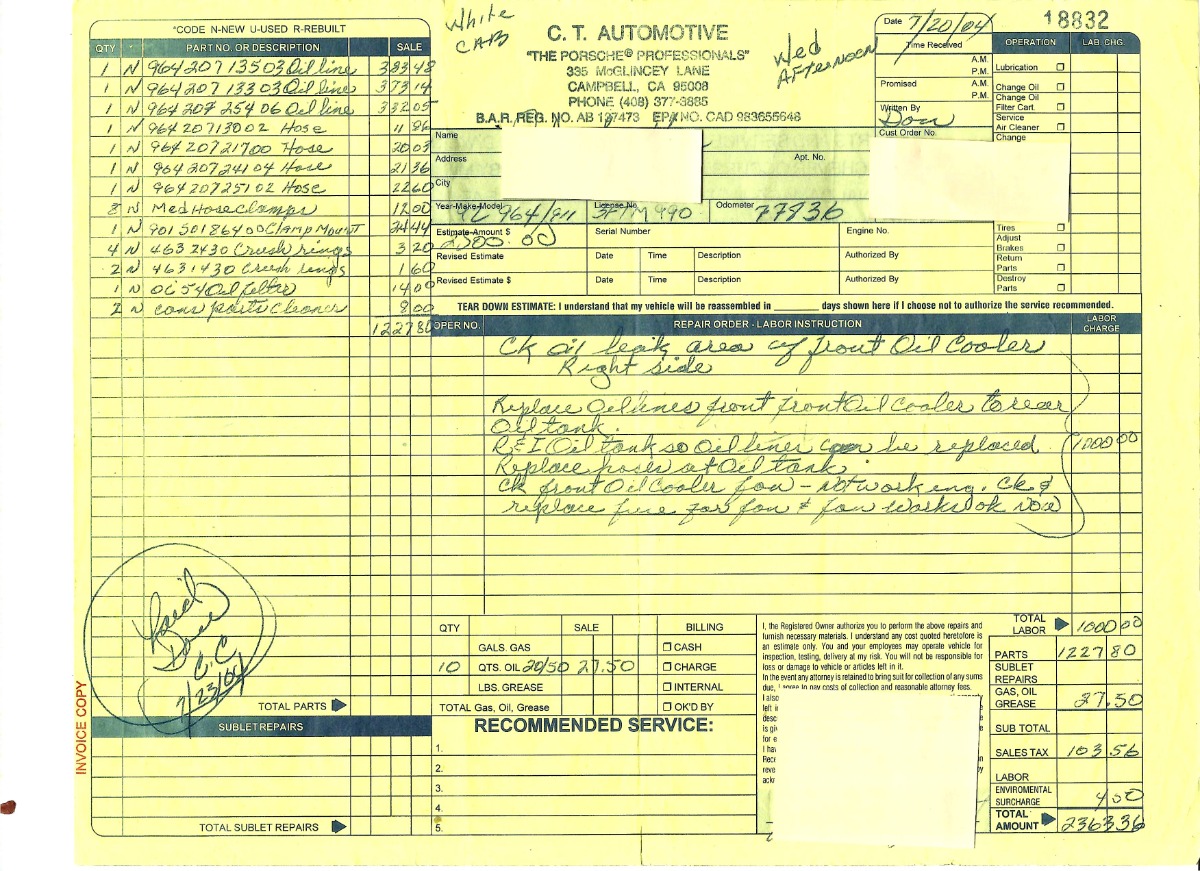 *CODE N-NEW U-USED R-REBUILT
QTY PART NO. OR DESCRIPTION SALE
1 N 964 207 135 03 Oil line 383 48
1 N 964 207 133 03 Oil line 373 14
1 N 964 207 254 06 Oil line 332 05
1 N 964 207 130 02 Hose 11 86
1 N 964 207 217 00 Hose 20 03
1 N 964 207 241 04 Hose 21 36
1 N 964 207 251 02 Hose 22 60
8 N Med Hose Clamps 12 00
1 N 901 501 864 00 Clamp Mount 24 44
4 N 4632430 Crush rings 3 20
2 N 4631430 Crush rings 1 60
1 N Oil Filter 14 00
2 N cans parts Cleaner 8 00
1227 80
White CAB
C. T. AUTOMOTIVE
"THE PORSCHE® PROFESSIONALS"
335 McGLINCEY LANE
CAMPBELL, CA 95008
PHONE (408) 377-3885
B.A.R. REG. NO. AB 137473 EPA NO. CAD 983655648
Wed
AFTERNOON
Date 7/20/04
18832
Time Received
A.M.
P.M.
Promised A.M.
P.M.
Written By
Don
Cust Order No.
OPERATION LAB. CHG.
Lubrication
Change Oil
Change Oil
Filter Cart.
Service
Air Cleaner
Change
Tires
Adjust
Brakes
Return
Parts
Destroy
Parts
Name
Address Apt. No.
City
Year-Make-Model 92 964/911 License No. Odometer 77836
Estimate-Amount $ 2500.00 Serial Number Engine No.
Revised Estimate Date Time Description Authorized By
Revised Estimate $ Date Time Description Authorized By
TEAR DOWN ESTIMATE: I understand that my vehicle will be reassembled in ________ days shown here if I choose not to authorize the service recommended.
OPER NO. REPAIR ORDER - LABOR INSTRUCTION LABOR CHARGE
Ck oil leak area of front Oil Cooler
Right side
Replace Oil lines front front Oil Cooler to rear
Oil tank.
R&I Oil tank so Oil lines can be replaced. 1000 00
Replace hoses at Oil tank
Ck front Oil Cooler fan - Not working. Ck &
replace fuse for fan & fan works ok now
Paid
C.C.
7/23/04
TOTAL PARTS
SUBLET REPAIRS
TOTAL SUBLET REPAIRS
INVOICE COPY
QTY SALE BILLING
GALS. GAS CASH
10 QTS. OIL 20/50 27.50 CHARGE
LBS. GREASE INTERNAL
TOTAL Gas, Oil, Grease OK'D BY
RECOMMENDED SERVICE:
1.
2.
3.
4.
5.
I, the Registered Owner authorize you to perform the above repairs and
furnish necessary materials. I understand any cost quoted heretofore is
an estimate only. You and your employees may operate vehicle for
inspection, testing, delivery at my risk. You will not be responsible for
loss or damage to vehicle or articles left in it.
In the event any attorney is retained to bring suit for collection of any sums
due, I agree to pay costs of collection and reasonable attorney fees.
I also
left i
desc
is giv
for e
I hav
Rece
reve
ackr
TOTAL LABOR 1000 00
PARTS 1227 80
SUBLET REPAIRS
GAS, OIL GREASE 27.50
SUB TOTAL
SALES TAX 103.56
LABOR
ENVIROMENTAL SURCHARGE 4 50
TOTAL AMOUNT 2363 36